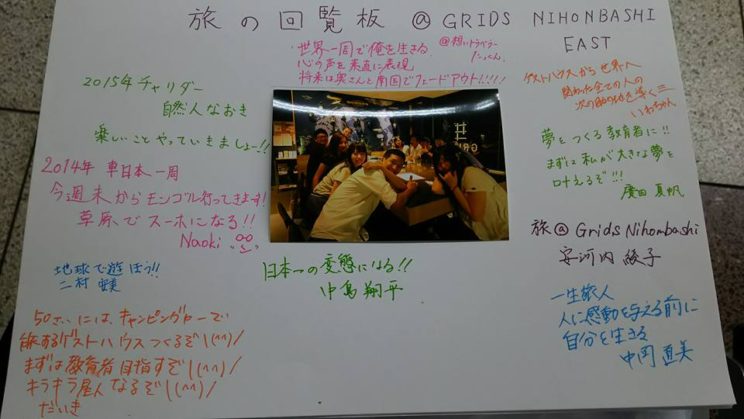 旅の回覧板 @ GRIDS NIHONBASHI
EAST
・世界一周で俺を生きる
心の声を素直に表現
将来は奥さんと南国でフェードアウト!!!!
@想いトラベラー
たっくん
2015年チャリダー
自然人なおき
楽しいことやっていきましょー!!
2014年 車日本一周
今週末からモンゴル行ってきます!
草原でスーホになる!!
Naoki
地球で遊ぼう!!
二村
50さいには、キャンピングカーで
旅するゲストハウスつくるぞ\(^^)/
まずは教育者目指すぞ\(^^)/
キラキラ星人なるぞ\(^^)/
だいき
日本一の変態になる!!
中島翔平
ゲストハウスから世界へ
関わった全ての人の
次の
いわちゃん
夢をつくる教育者に!!
まずは私が大きな夢を
叶えるぞ!!!
廣田 真帆
旅@Grids Nihombashi
安河内 綾子
一生旅人
人に感動を与える前に
自分を生きる
中岡 直美